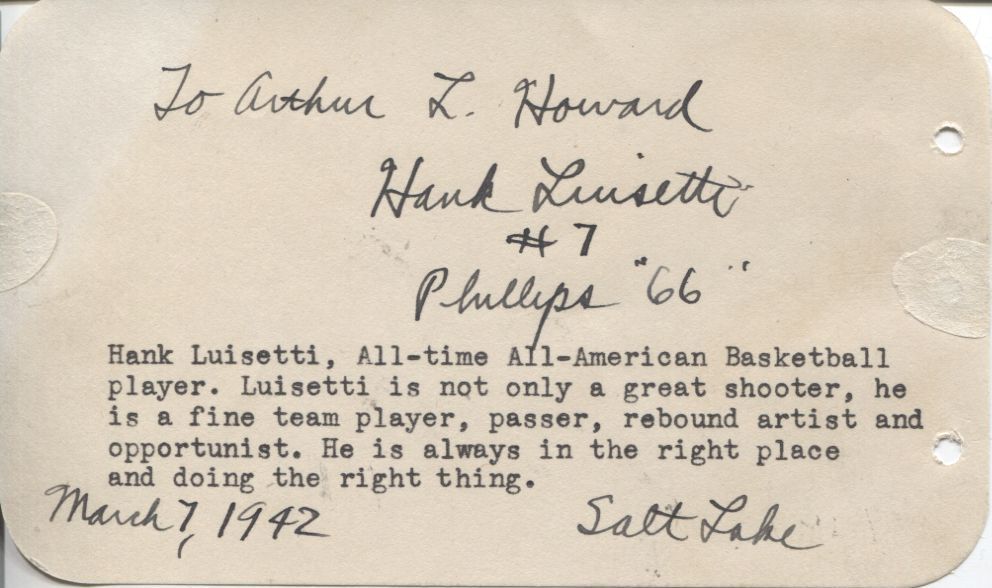 To Arthur L. Howard
Hank Luisetti
#7
Phillips "66"
Hank Luisetti, All-time All-American Basketball
player. Luisetti is not only a great shooter, he
is a fine team player, passer, rebound artist and
opportunist. He is always in the right place
and doing the right thing.
March 7, 1942 Salt Lake